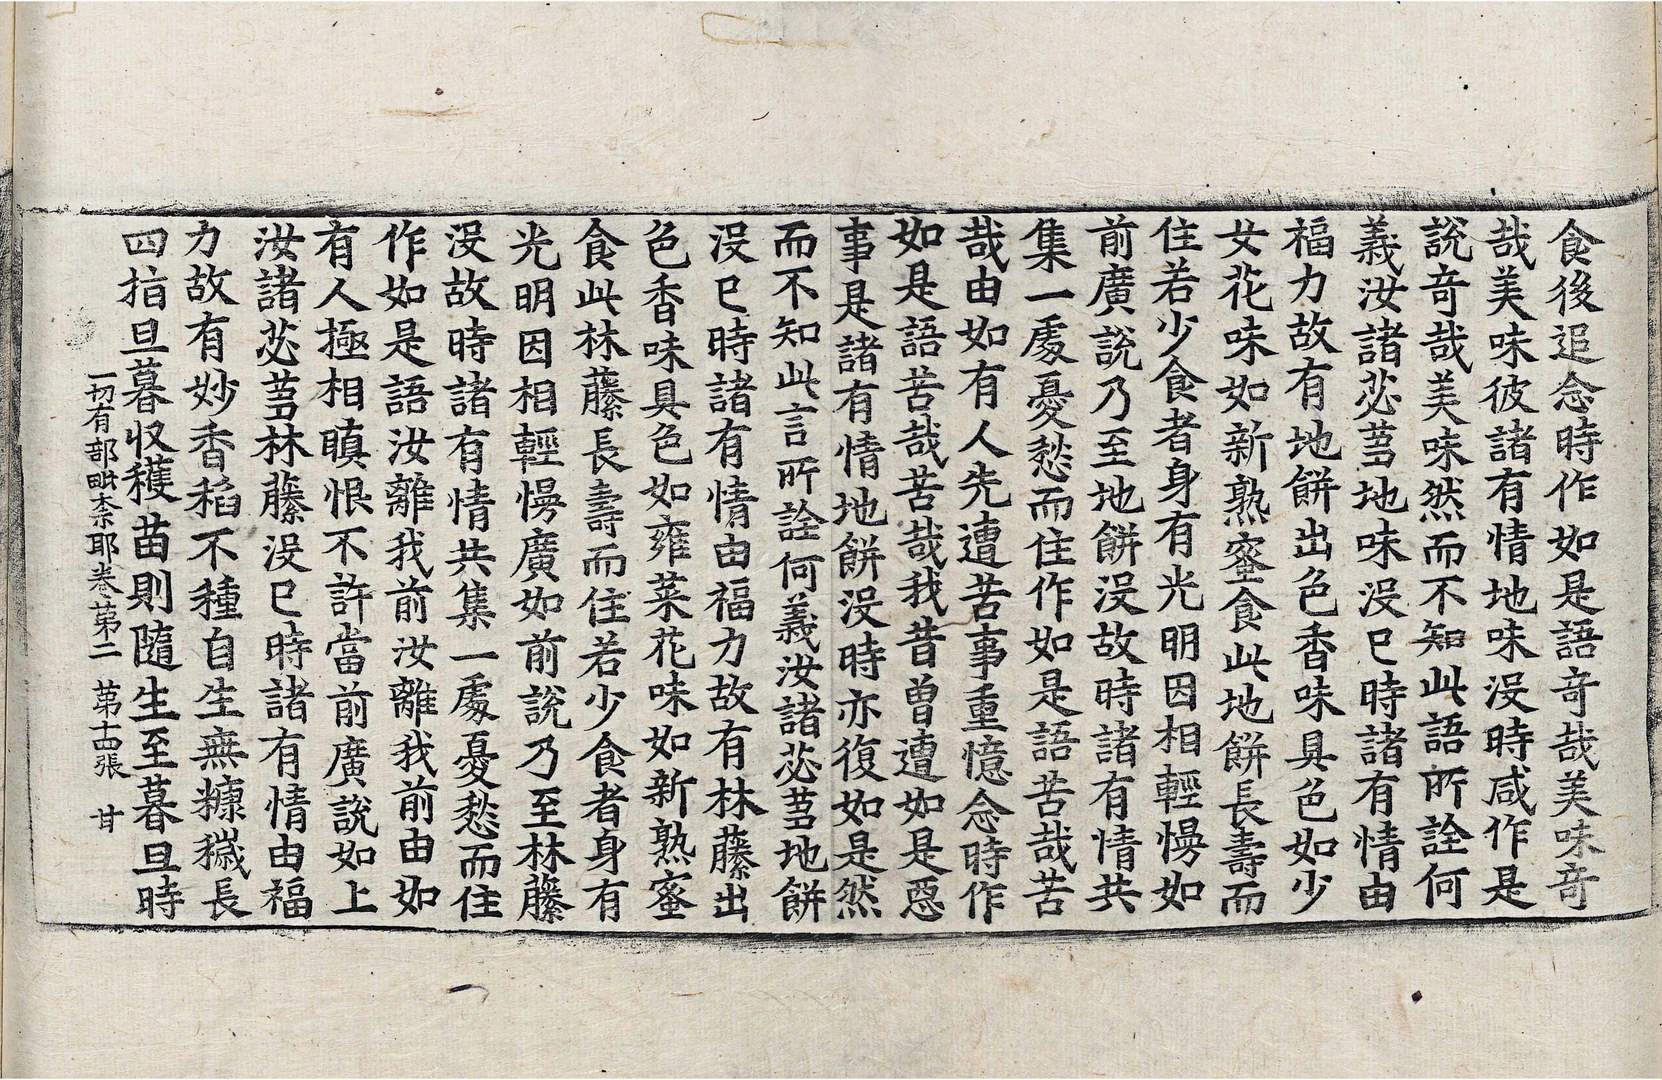 食後追念時作如是語奇哉美味奇
哉美味彼諸有情地味没時咸作是
說奇哉美味然而不知此語所詮何
義汝諸苾芻地味没已時諸有情由
福力故有地餅出色香味具色如少
女花味如新熟蜜食此地餅長壽而
住若少食者身有光明因相輕慢如
前廣說乃至地餅没故時諸有情共
集一處憂愁而住作如是語苦哉苦
哉由如有人先遭苦事重憶念時作
如是語苦哉苦哉我昔曾遭如是惡
事是諸有情地餅没時亦復如是然
而不知此言所詮何義汝諸苾芻地餅
没已時諸有情由福力故有林藤出
色香味具色如雍菜花味如新熟蜜
食此林藤長壽而住若少食者身有
光明因相輕慢廣如前說乃至林藤
没故時諸有情共集一處憂愁而住
作如是語汝離我前汝離我前由如
有人極相瞋恨不許當前廣說如上
汝諸苾芻林藤没已時諸有情由福
力故有妙香稻不種自生無糠穢長
四指旦暮收穫苗則隨生至暮旦時
一切有部毗柰耶卷第二 第十四張 甘